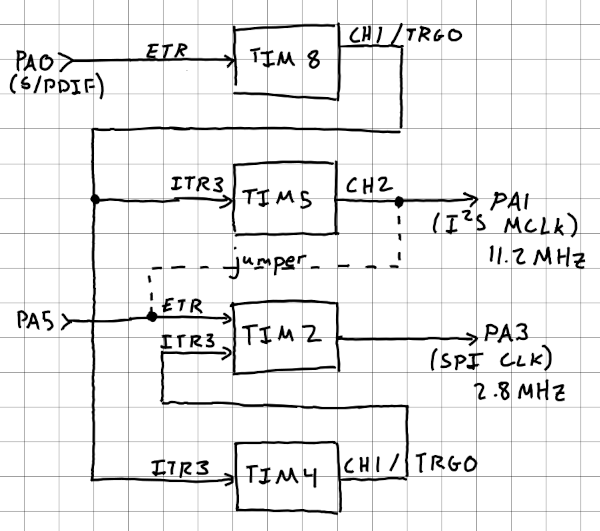 CH1/TRGO
ETR
TIM 8
PA0
(S/PDIF)
ITR3
TIM5
CH2
PA1
(I²S MCLK)
11.2 MHZ
jumper
PA5
ETR
ITR3
TIM2
PA3
(SPI CLK)
2.8 MHZ
ITR3
TIM4
CH1/TRGO